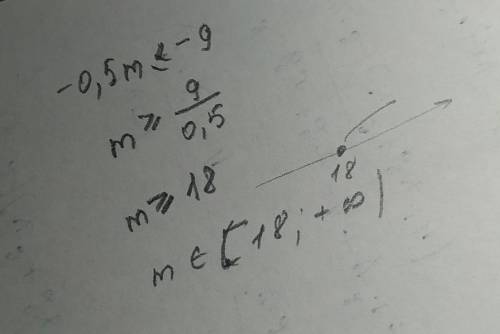 -0,5m ≤ -9
m ≥ 9/0,5
m ≥ 18
18
m ∈ [18; +∞)